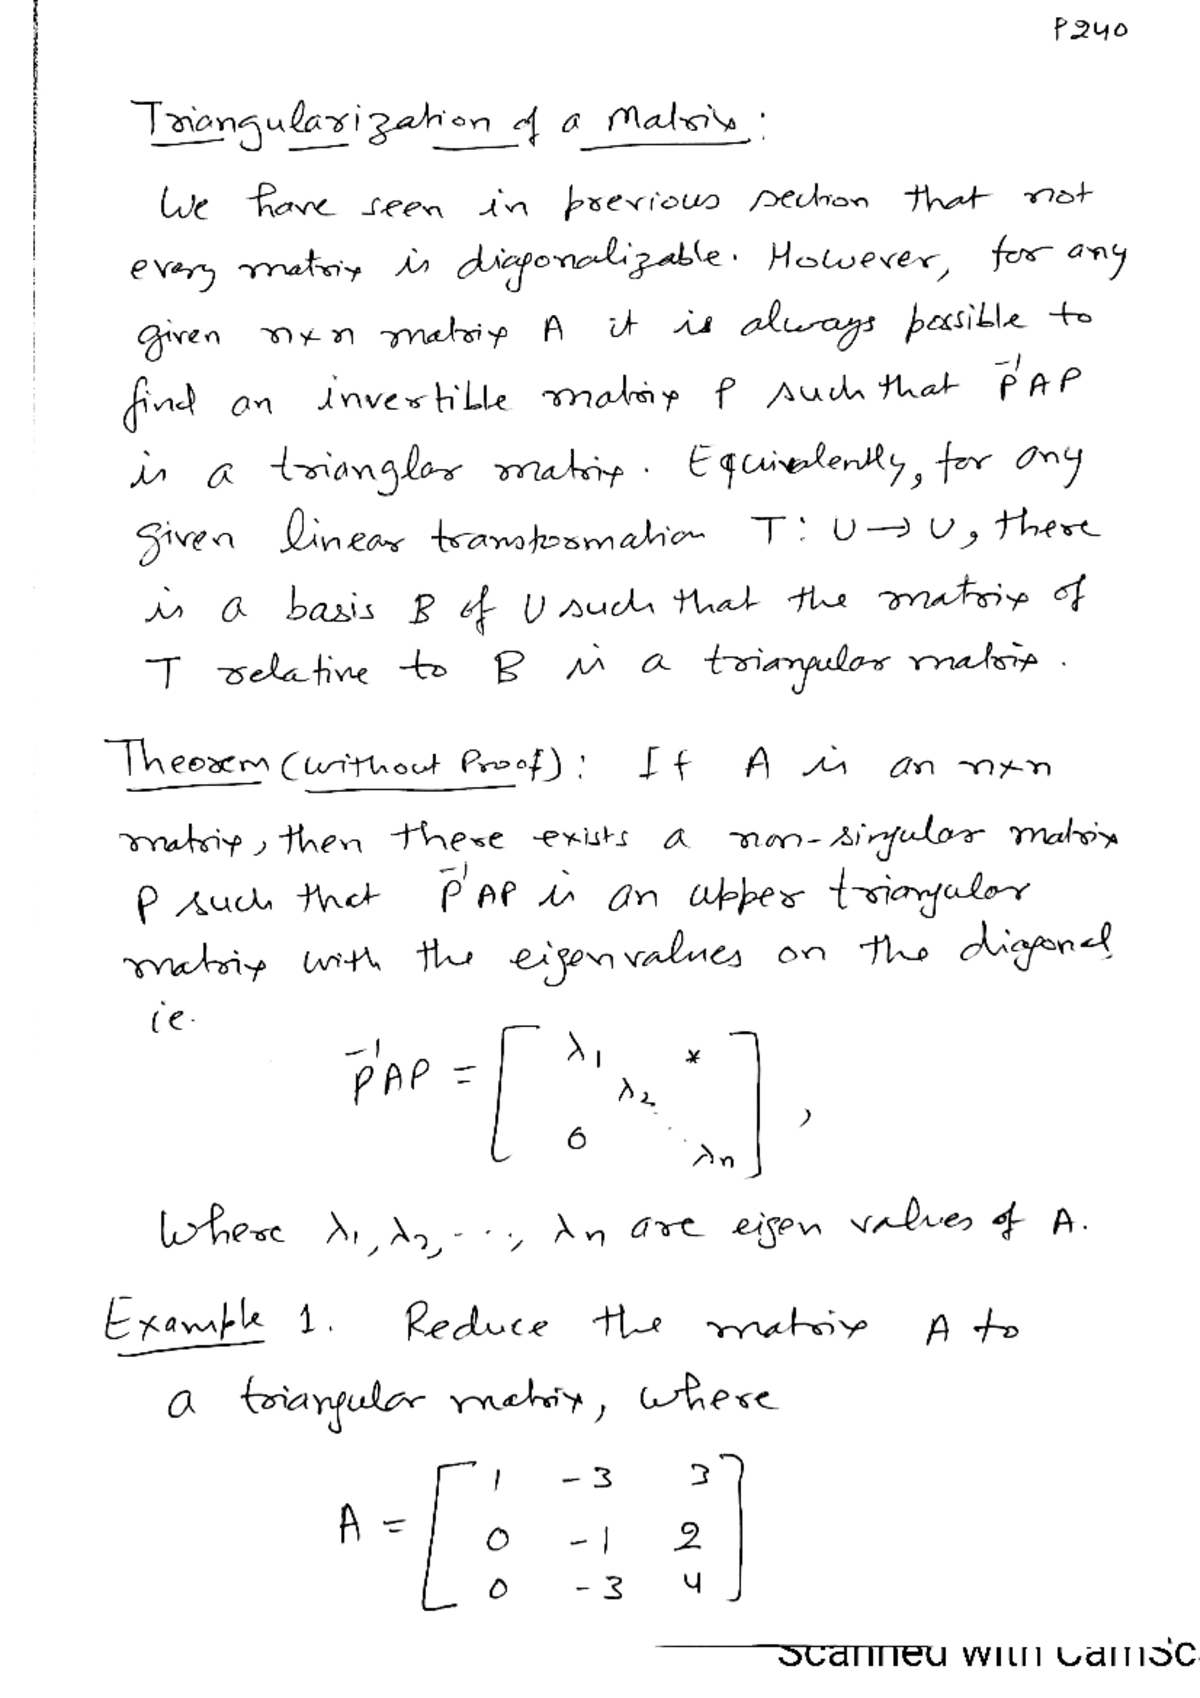 P240
Triangularization of a Matrix:
We have seen in previous section that not
every matrix is diagonalizable. However, for any
given n×n matrix A it is always possible to
find an invertible matrix P such that P⁻¹AP
is a trianglar matrix. Equivalently, for any
given linear transformation T: U→U, there
is a basis B of U such that the matrix of
T relative to B is a triangular matrix.
Theorem (without Proof): If A is an n×n
matrix, then there exists a non-singular matrix
P such that P⁻¹AP is an upper triangular
matrix with the eigenvalues on the diagonal
ie.
P⁻¹AP = [ λ1 *
λ2
0 λn ],
Where λ1, λ2, ..., λn are eigen values of A.
Example 1. Reduce the matrix A to
a triangular matrix, where
A = [ 1 -3 3
0 -1 2
0 -3 4 ]
Scanned with CamSc